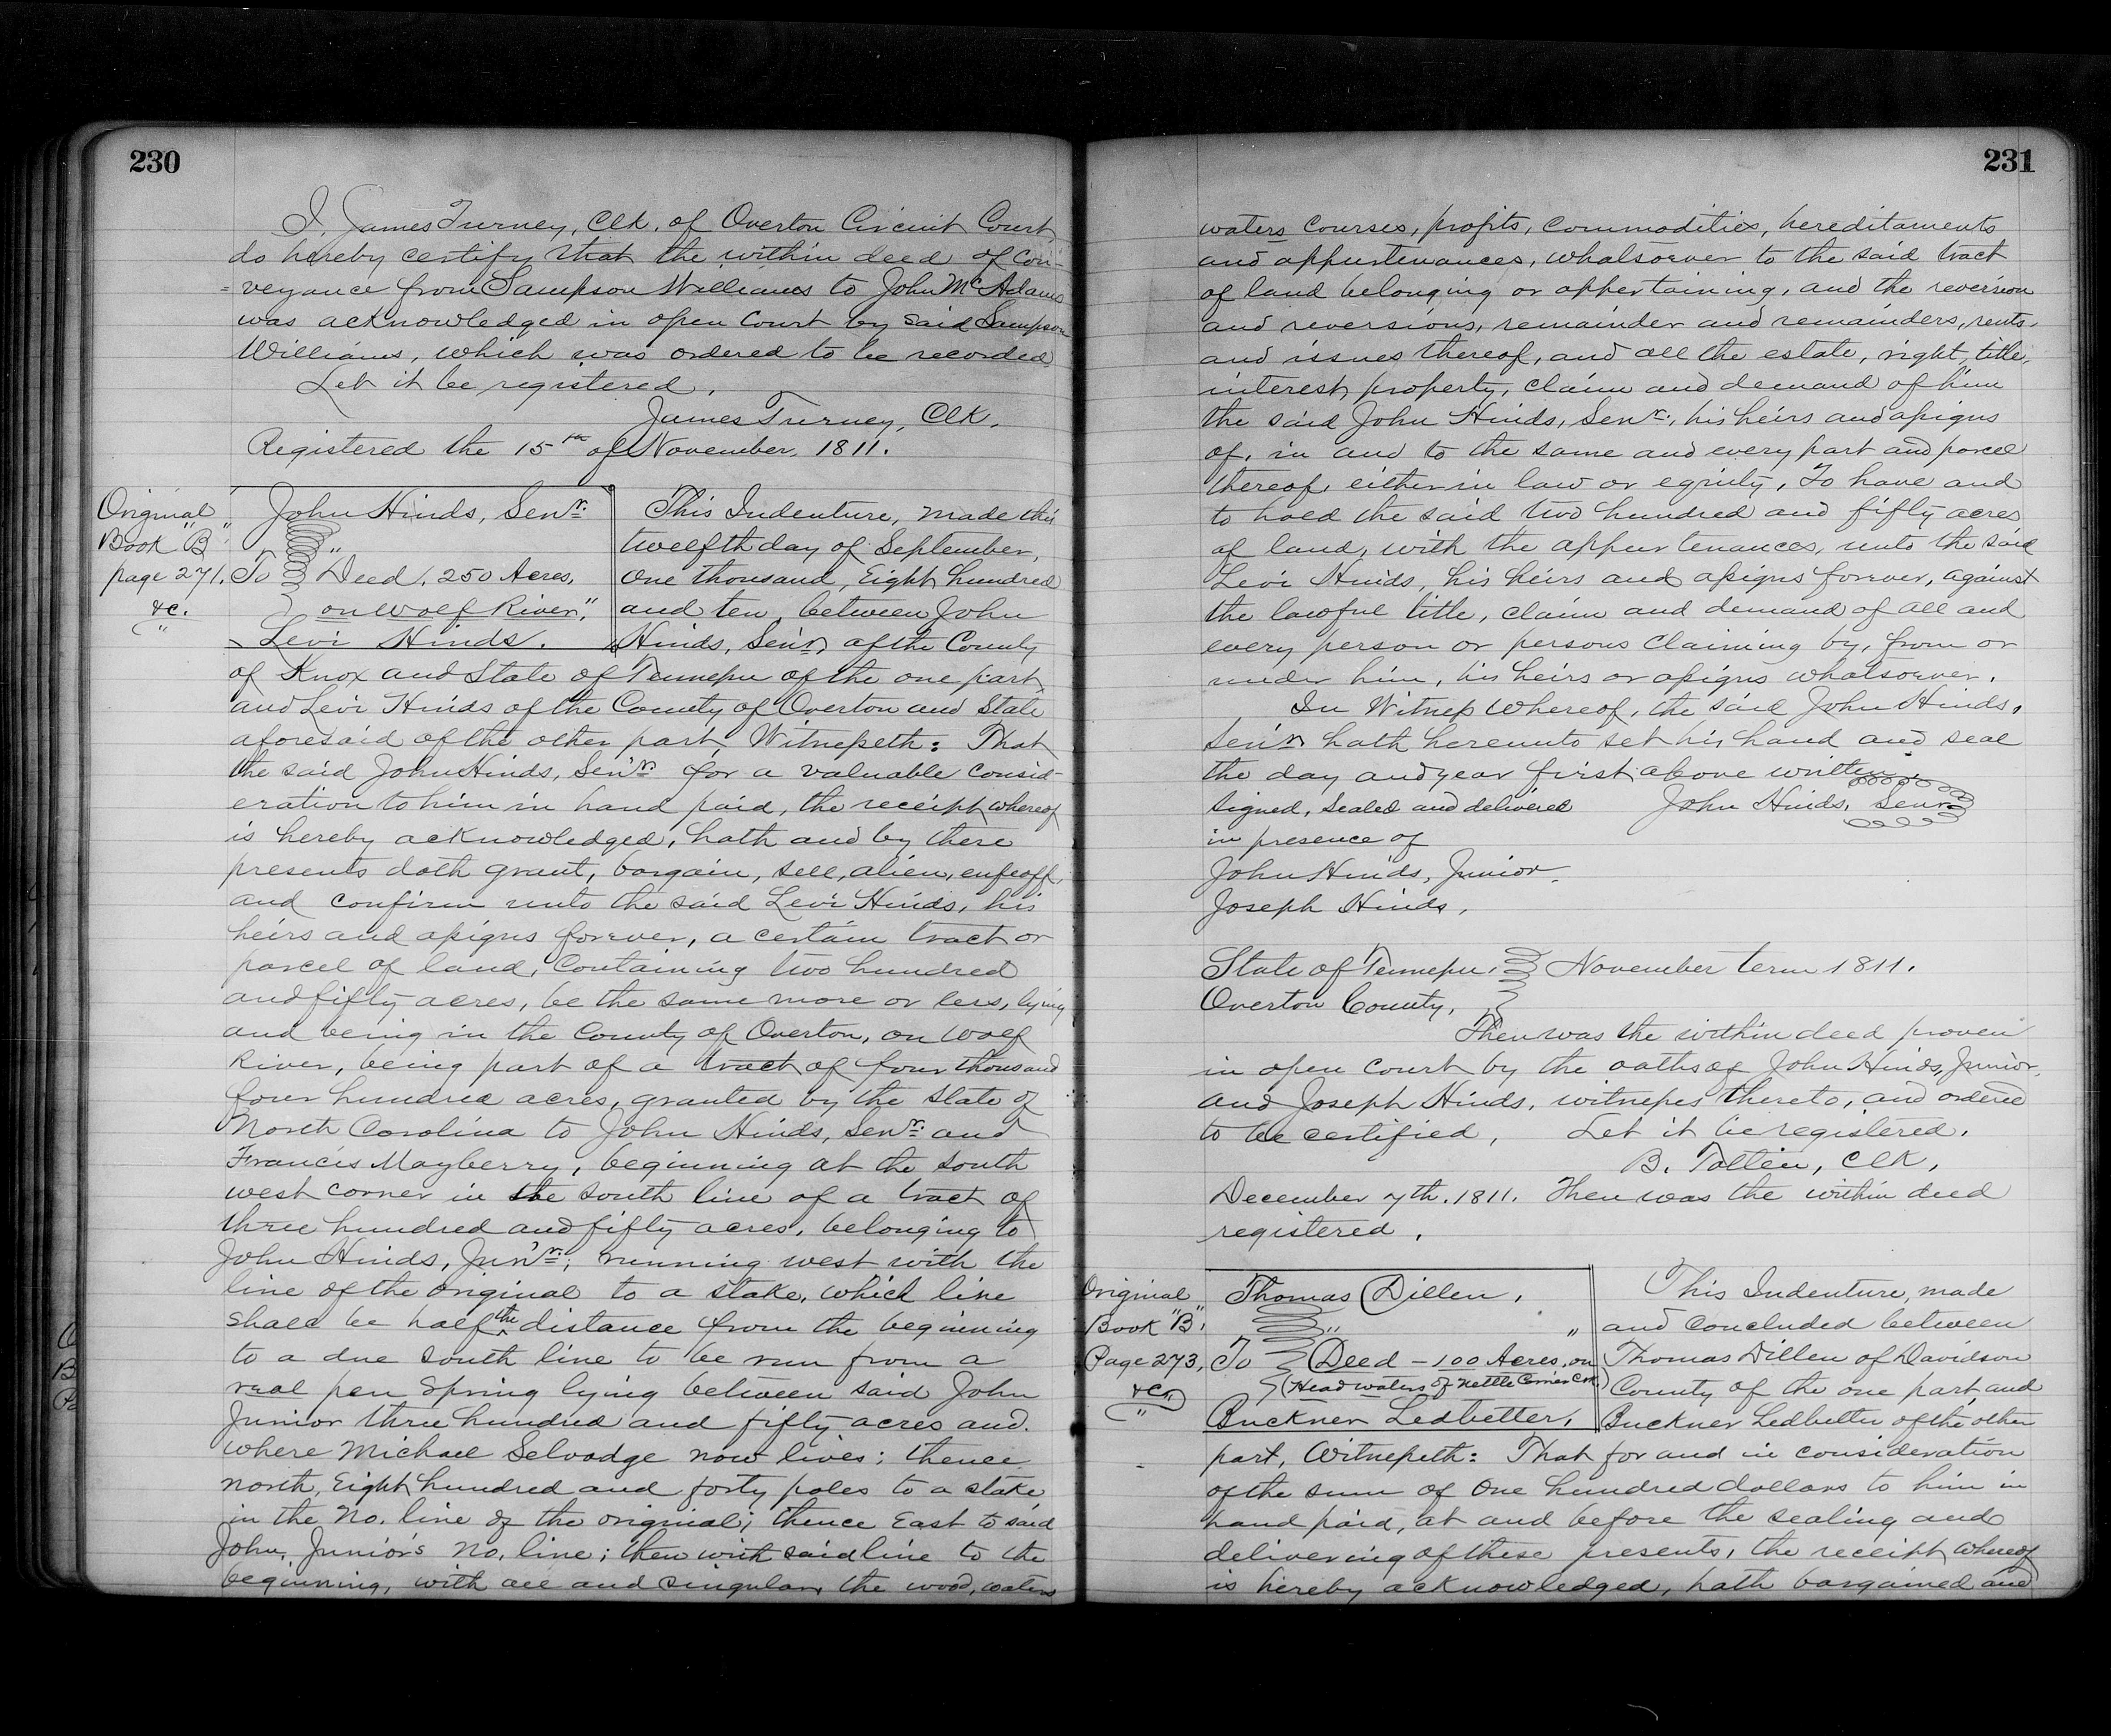 230
I, James Turney, Clk. of Overton Circuit Court
do hereby certify that the within deed of con-
=veyance from Sampson Williams to John McAdams
was acknowledged in open Court by said Sampson
Williams, which was ordered to be recorded
Let it be registered.
James Turney, Clk.
Registered the 15th of November, 1811.
Original
Book "B"
page 271.
&c.
"
John Hinds, Senr.
"
To Deed, 250 Acres,
on Wolf River,"
Levi Hinds.
This Indenture, made this
twelfth day of September,
One thousand, Eight hundred
and ten, between John
Hinds, Senr. of the County
of Knox and State of Tennessee of the one part,
and Levi Hinds of the County of Overton and State
aforesaid of the other part, Witnesseth: That
the said John Hinds, Sen'r. for a valuable consid-
eration to him in hand paid, the receipt whereof
is hereby acknowledged, hath and by these
presents doth grant, bargain, sell, alien, enfeoff
and confirm unto the said Levi Hinds, his
heirs and assigns forever, a certain tract or
parcel of land, Containing two hundred
and fifty acres, be the same more or less, lying
and being in the County of Overton, on Wolf
River, being part of a tract of four thousand
four hundred acres, granted by the State of
North Carolina to John Hinds, Senr. and
Francis Mayberry, beginning at the south
west corner in the south line of a tract of
three hundred and fifty acres, belonging to
John Hinds, Jun'r.; running west with the
line of the original to a stake, which line
shall be half the distance from the beginning
to a due south line to be run from a
real pen Spring lying between said John
Junior three hundred and fifty acres and.
where Michael Selvadge now lives; thence
north, Eight hundred and forty poles to a stake
in the No. line of the original; thence East to said
John, Junior's No. line; then with said line to the
beginning, with all and singular, the wood, waters
231
waters courses, profits, commodities, hereditaments
and appurtenances, whatsoever to the said tract
of land belonging or appertaining, and the reversion
and reversions, remainder and remainders, rents.
and issues thereof, and all the estate, right, title,
interest, property, claim and demand of him
the said John Hinds, Senr., his heirs and assigns
of, in and to the same and every part and parcel
thereof, either in law or equity, To have and
to hold the said two hundred and fifty acres
of land, with the appurtenances, unto the said
Levi Hinds, his heirs and assigns forever, against
the lawful title, claim and demand of all and
every person or persons Claiming by, from or
under him, his heirs or assigns whatsoever.
In Witness whereof, the said John Hinds,
Sen'r. hath hereunto set his hand and seal
the day and year first above written.
Signed, Sealed and delivered John Hinds, Senr.
in presence of
John Hinds, Junior.
Joseph Hinds.
State of Tennessee. November term 1811.
Overton County.
Then was the within deed proven
in open Court by the oaths of John Hinds, Junior,
and Joseph Hinds, witnesses thereto, and ordered
to be certified. Let it be registered.
B. Totten, Clk.
December 7th. 1811. Then was the within deed
registered.
Original
Book "B".
Page 273,
&c.
"
Thomas Dillen,
" "
To Deed - 100 Acres, on
(Head waters of Nettle Carrier Crk)
Buckner Ledbetter,
This Indenture, made
and concluded between
Thomas Dillen of Davidson
County of the one part, and
Buckner Ledbetter of the other
part, Witnesseth: That for and in consideration
of the sum of One hundred dollars to him in
hand paid, at and before the sealing and
delivering of these presents, the receipt whereof
is hereby acknowledged, hath bargained and